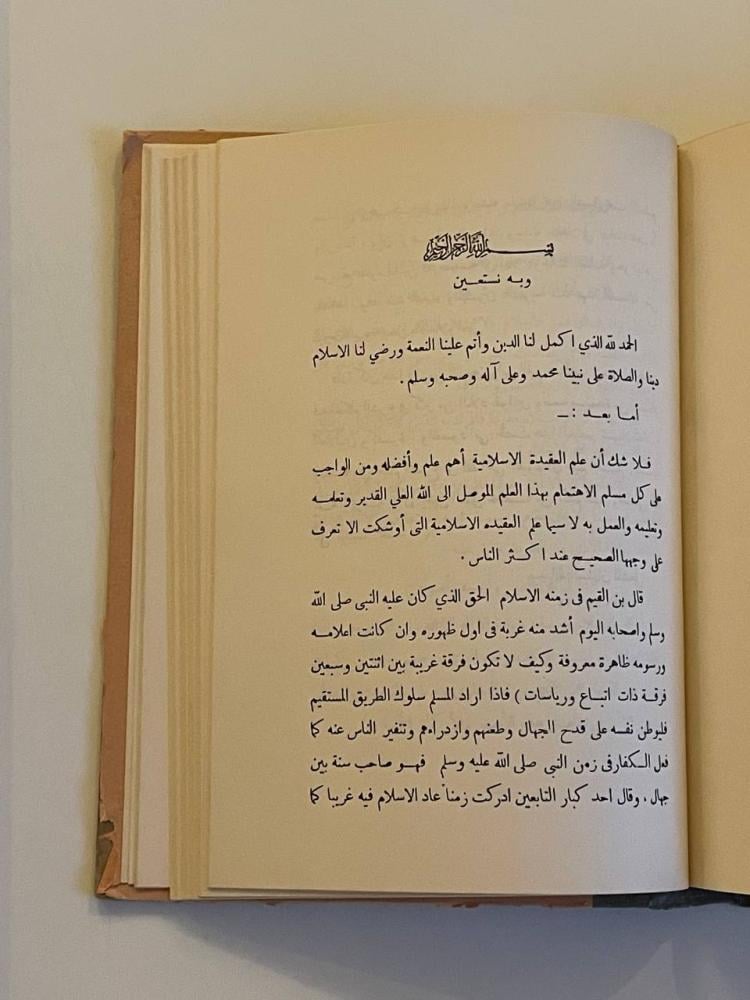 بسم الله الرحمن الرحيم
وبه نستعين
الحمد لله الذي اكمل لنا الدين وأتم علينا النعمة ورضي لنا الاسلام
دينا والصلاة على نبينا محمد وعلى آله وصحبه وسلم .
أما بعد : ــ
فلا شك أن علم العقيدة الاسلامية أهم علم وأفضله ومن الواجب
على كل مسلم الاهتمام بهذا العلم الموصل الى الله العلي القدير وتعلمه
وتعليمه والعمل به لا سيما علم العقيده الاسلامية التى أوشكت الا تعرف
على وجهها الصحيح عند اكثر الناس .
قال بن القيم فى زمنه الاسلام الحق الذي كان عليه النبى صلى الله
وسلم واصحابه اليوم أشد منه غربة فى اول ظهوره وان كانت اعلامه
ورسومه ظاهرة معروفة وكيف لا تكون فرقة غريبة بين اثنتين وسبعين
فرقة ذات اتباع ورياسات ) فاذا اراد المسلم سلوك الطريق المستقيم
فليوطن نفسه على قدح الجهال وطعنهم وازدراءهم وتنفير الناس عنه كما
فعل الكفار فى زمن النبى صلى الله عليه وسلم فهو صاحب سنة بين
جهال ، وقال احد كبار التابعين ادركت زمناً عاد الاسلام فيه غريبا كما